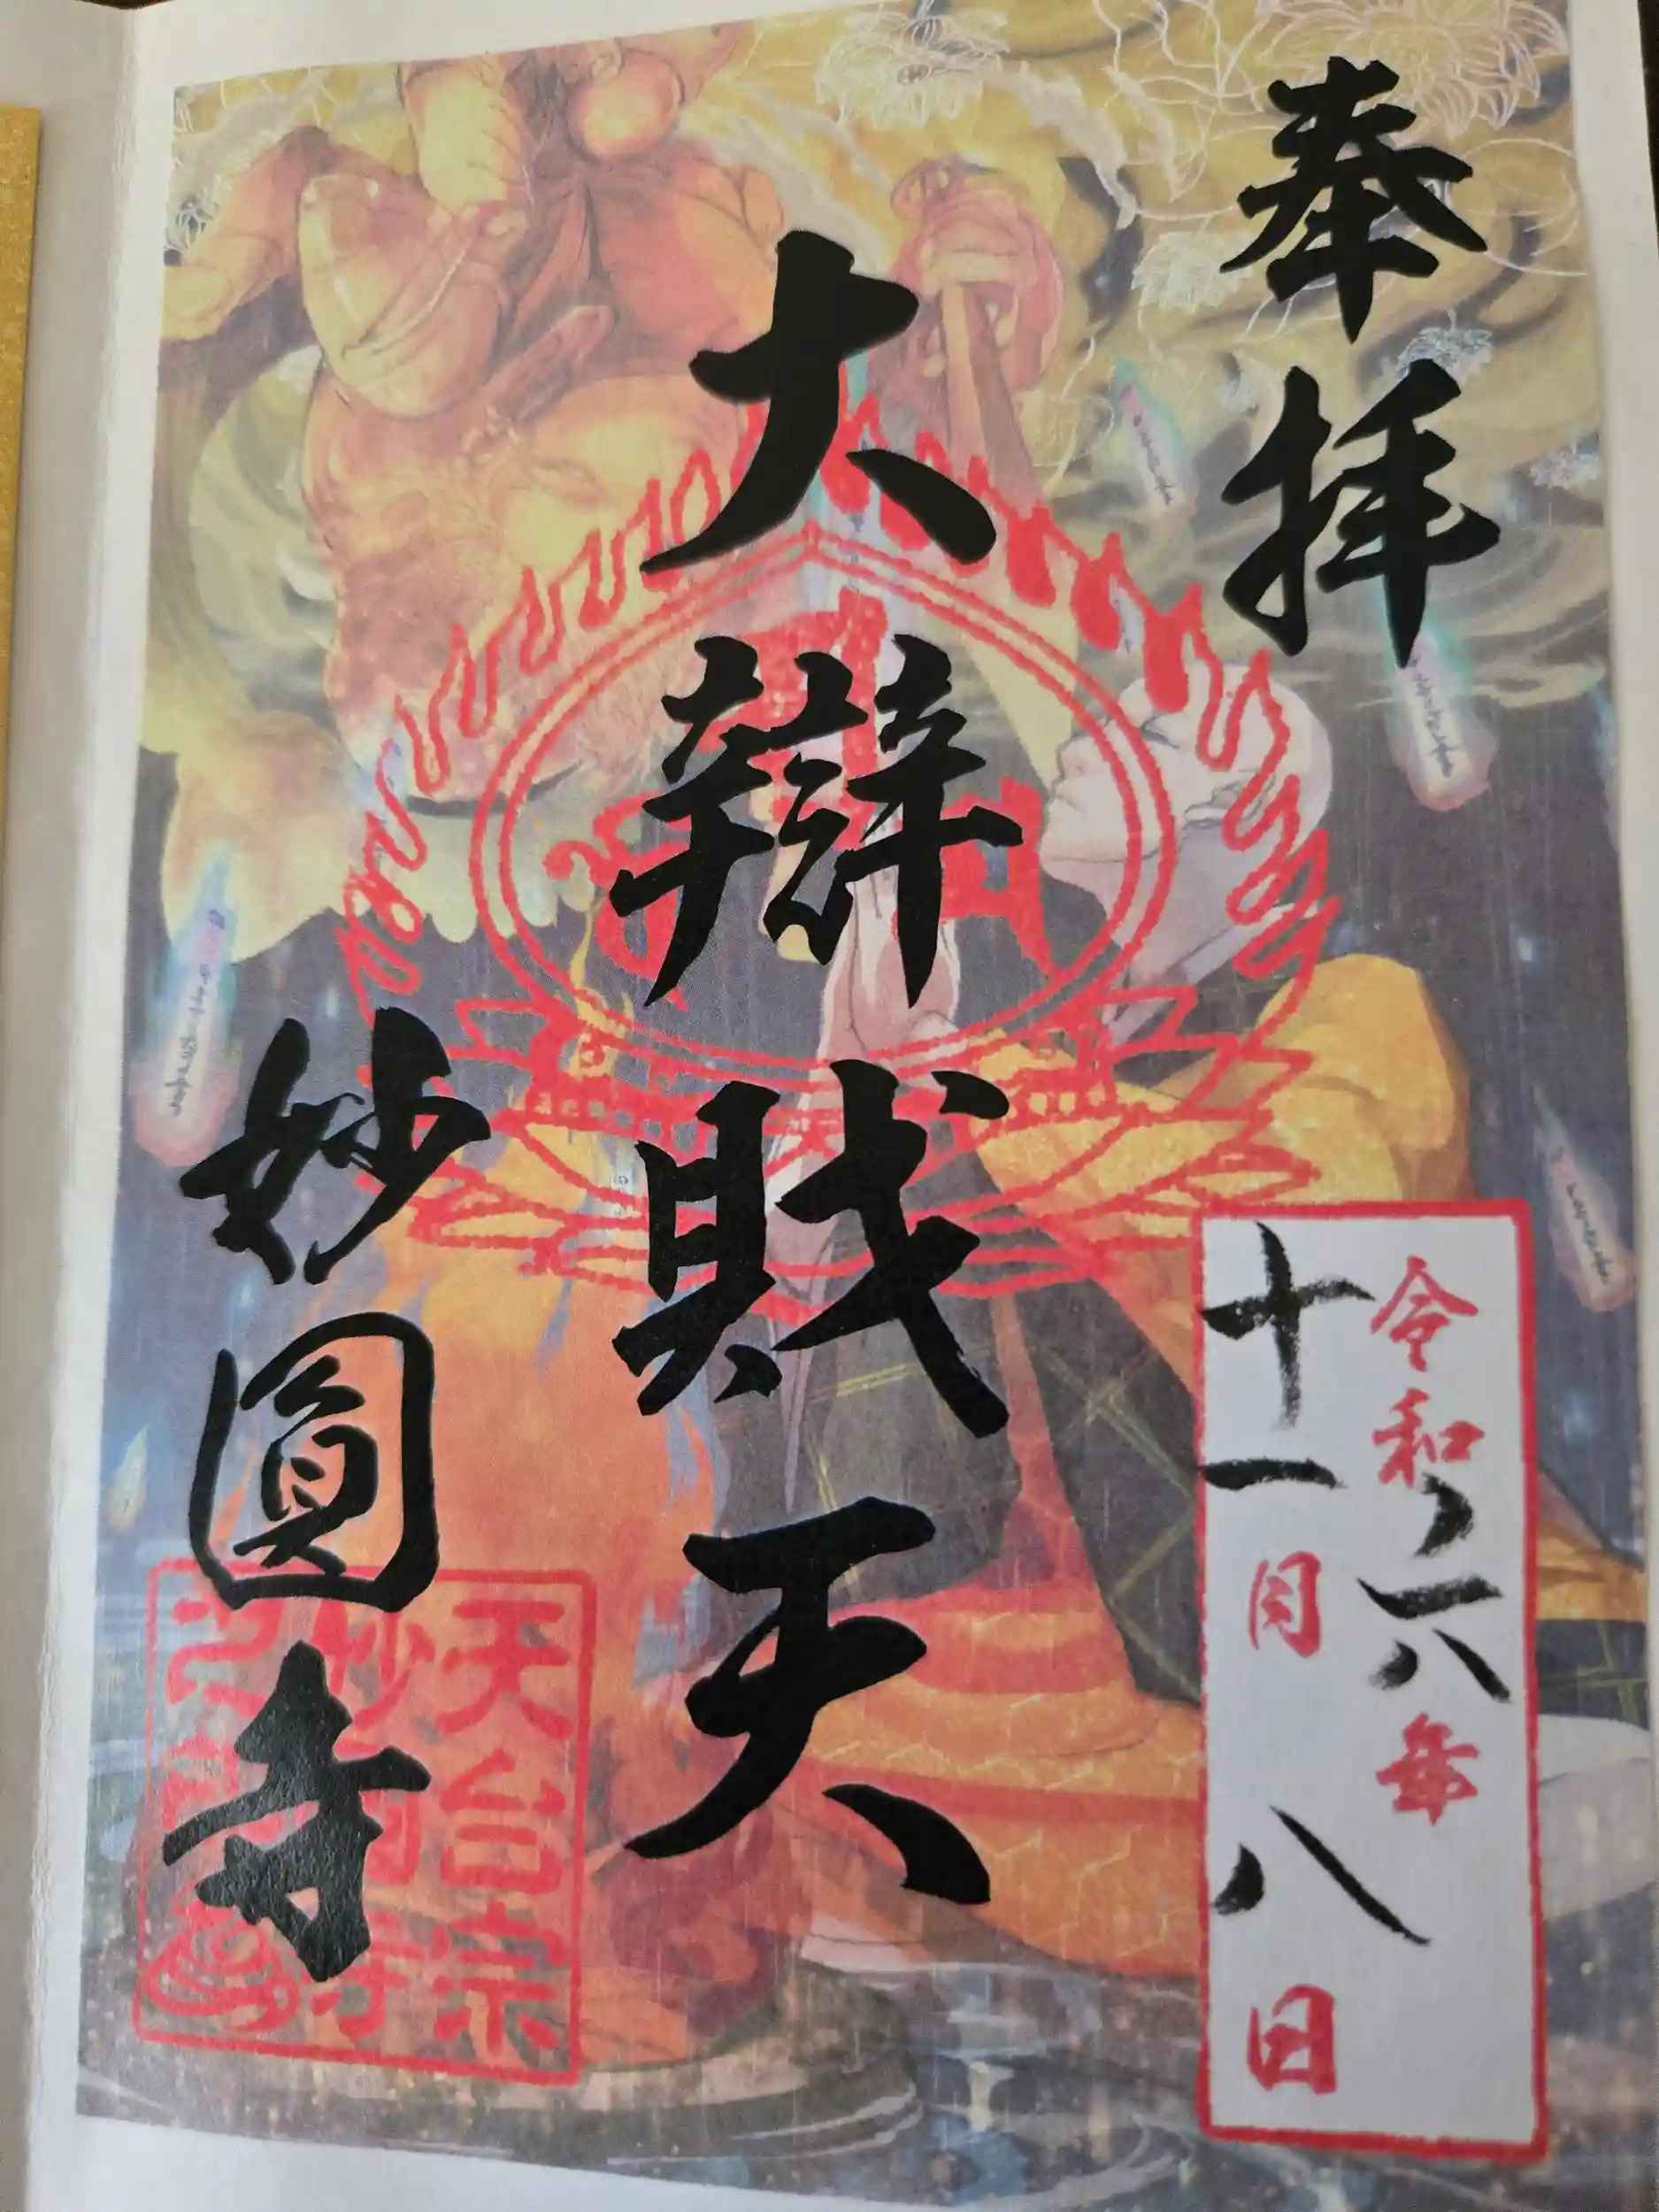 奉拝
令和六年
十一月八日
大辯財天
妙圓寺
天台宗
妙圓寺